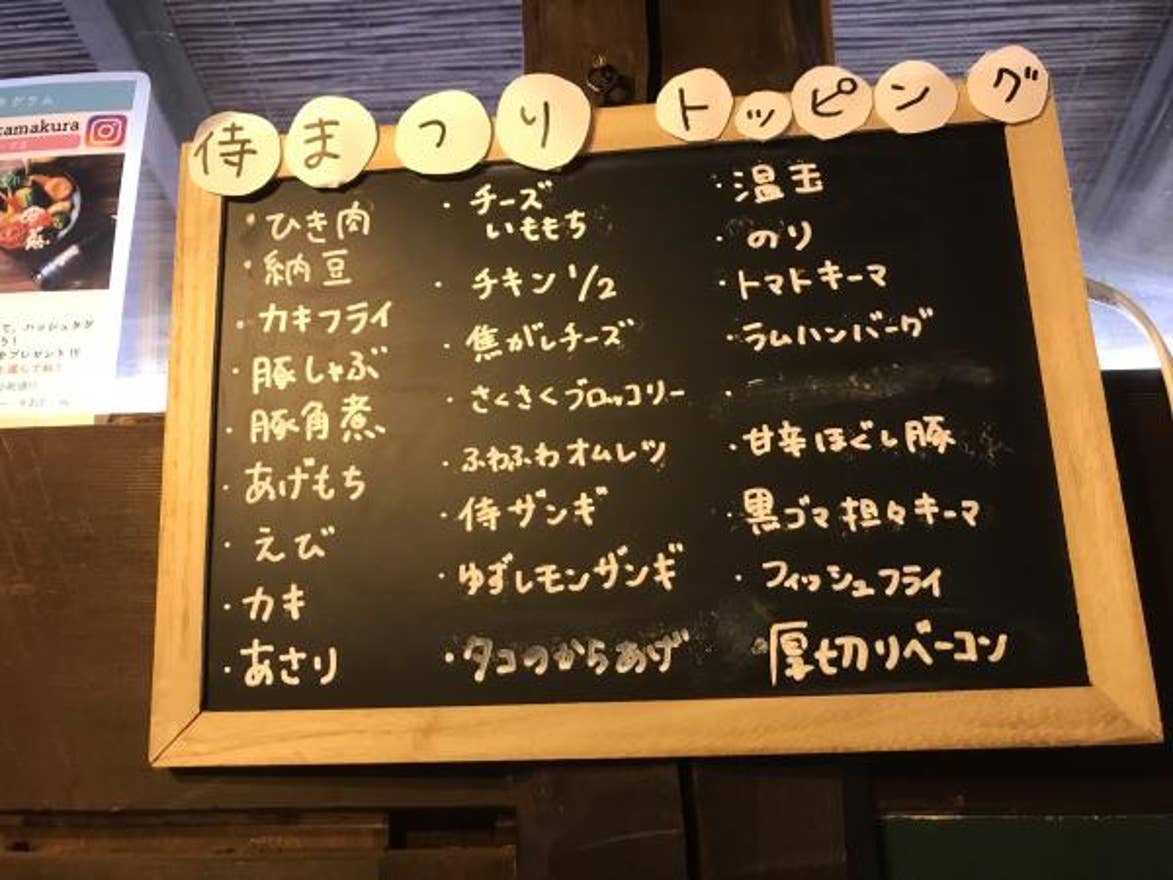 amakura
侍まつりトッピング
・ひき肉
・納豆
・カキフライ
・豚しゃぶ
・豚角煮
・あげもち
・えび
・カキ
・あさり
・チーズ
いももち
・チキン1/2
・焦がしチーズ
・さくさくブロッコリー
・ふわふわオムレツ
・侍ザンギ
・ゆずレモンザンギ
・タコのからあげ
・温玉
・のり
・トマトキーマ
・ラムハンバーグ
・
・甘辛ほぐし豚
・黒ゴマ担々キーマ
・フィッシュフライ
・厚切りベーコン